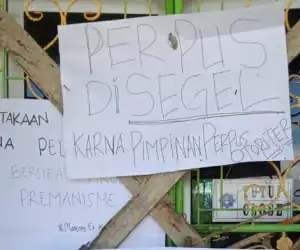 PERPUS
DISEGEL
KARNA PIMPINAN PERPUS
OTORITER
TAKAAN
NA PEL
BERSIFA
PREMANISME